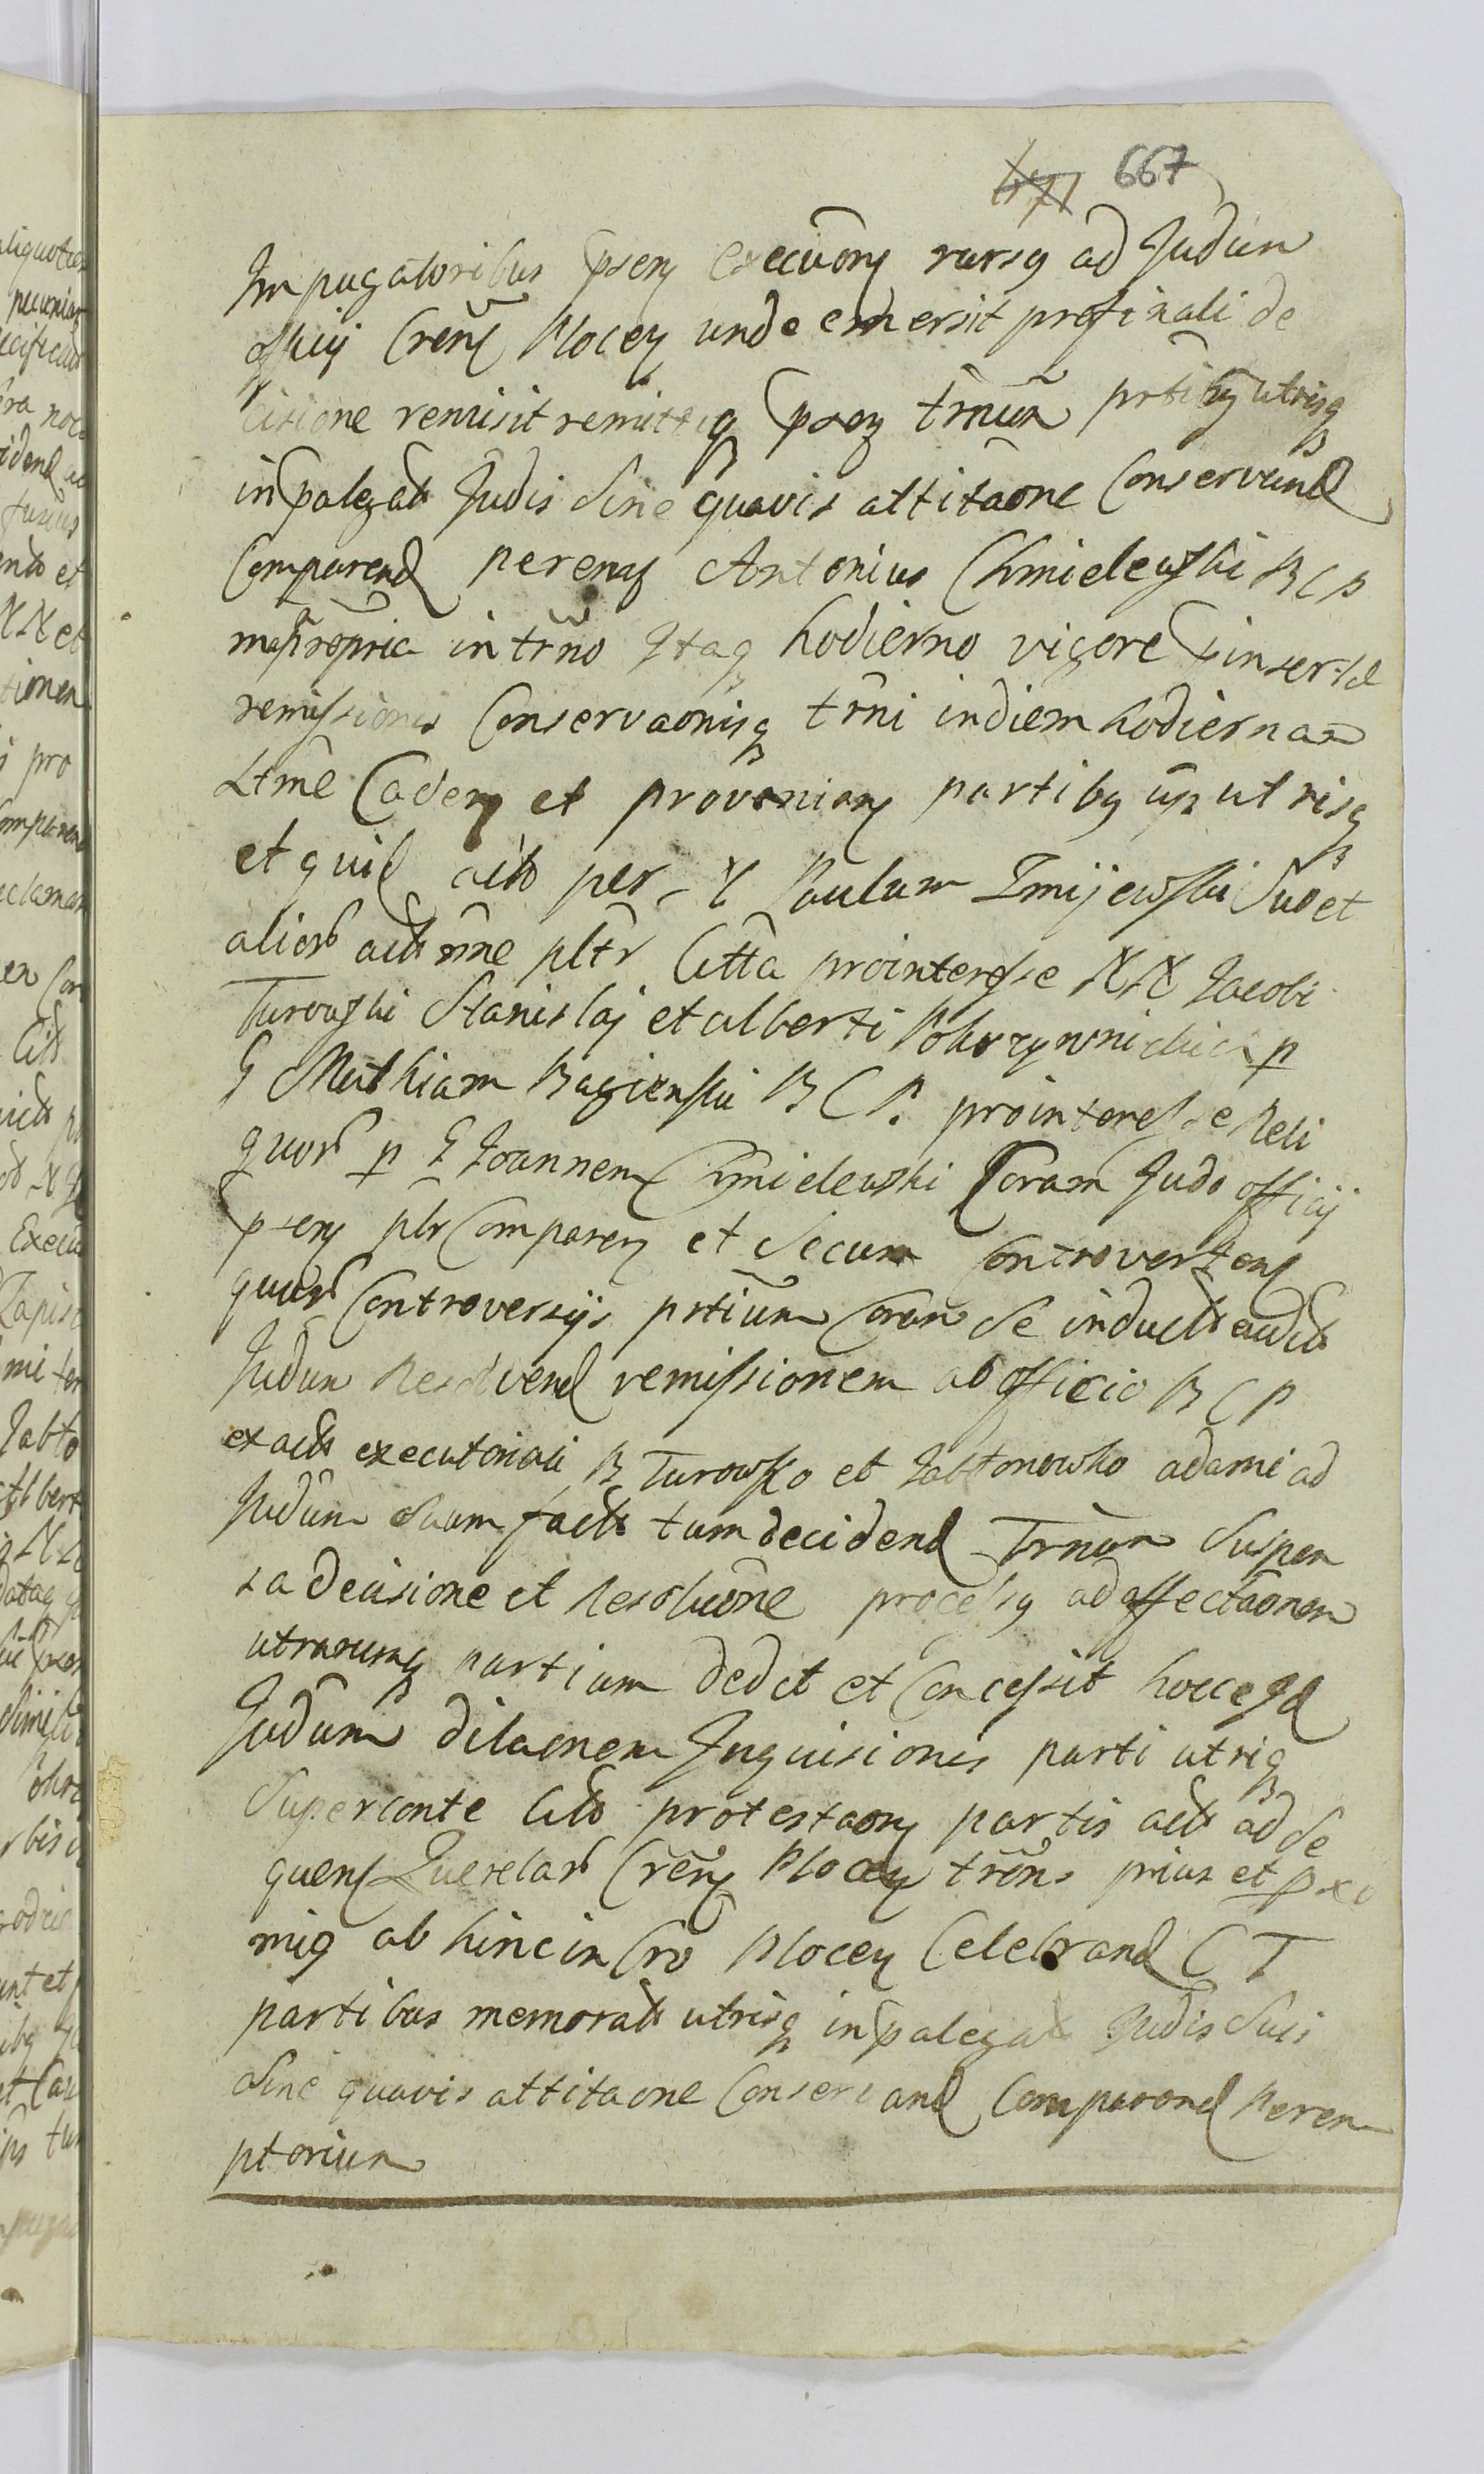 667
Impugatoribus psen execuõny rursq ad Judun
offiij Cren Plocen unde emersit profinali de
cisione remisit remittiq psen trnũm prtibq utrisq
in palegats Judis sine quavis attitaone Conservand
Comparend perenq Antonius Chmielewski B C P
mañpropria in trño Itaq hodierno vigore pinsertæ
remissionis Conservaonisq trñi in diem hodiernam
Ltmẽ Caden et proveniam partibq ips utrisq
et quid acto per N Paulum Zmijewski Suo et
alior actt nñe pltr Citta prointeresse NN Jacobi
Turowski Stanislaj et alberti Pokrzywnickich p
G Mathiam Bagienski B C P. prointeresse Reli
quor p G Joannem Chmielewski Coram Judo officij
psen plr Comparen et secum Controverten
quar Controversijs prtiũm Coram se induct audit
Judun Resolvend remissionem ab officio B C P
ex act executoriali B Turowsko et Jabłonowko adami ad
Judum suum fact tum decidend Trnũm suspen
sa decisione et Resoluõne processq ad affectãonem
utrarumq partium dedit et Concessit hocce Jd
Judum dilaonem Inquisionis parti utriq
Superconte Cito protestaony partis act ad se
quen Querelar Creñ Plocen trẽns prius et pxi
miq ab hinc in Cro Plocen Celebrand C T
partibus memorats utrisq in palegat Judis Suis
sine quavis attitaone Conservand Comparend Perem
ptorium